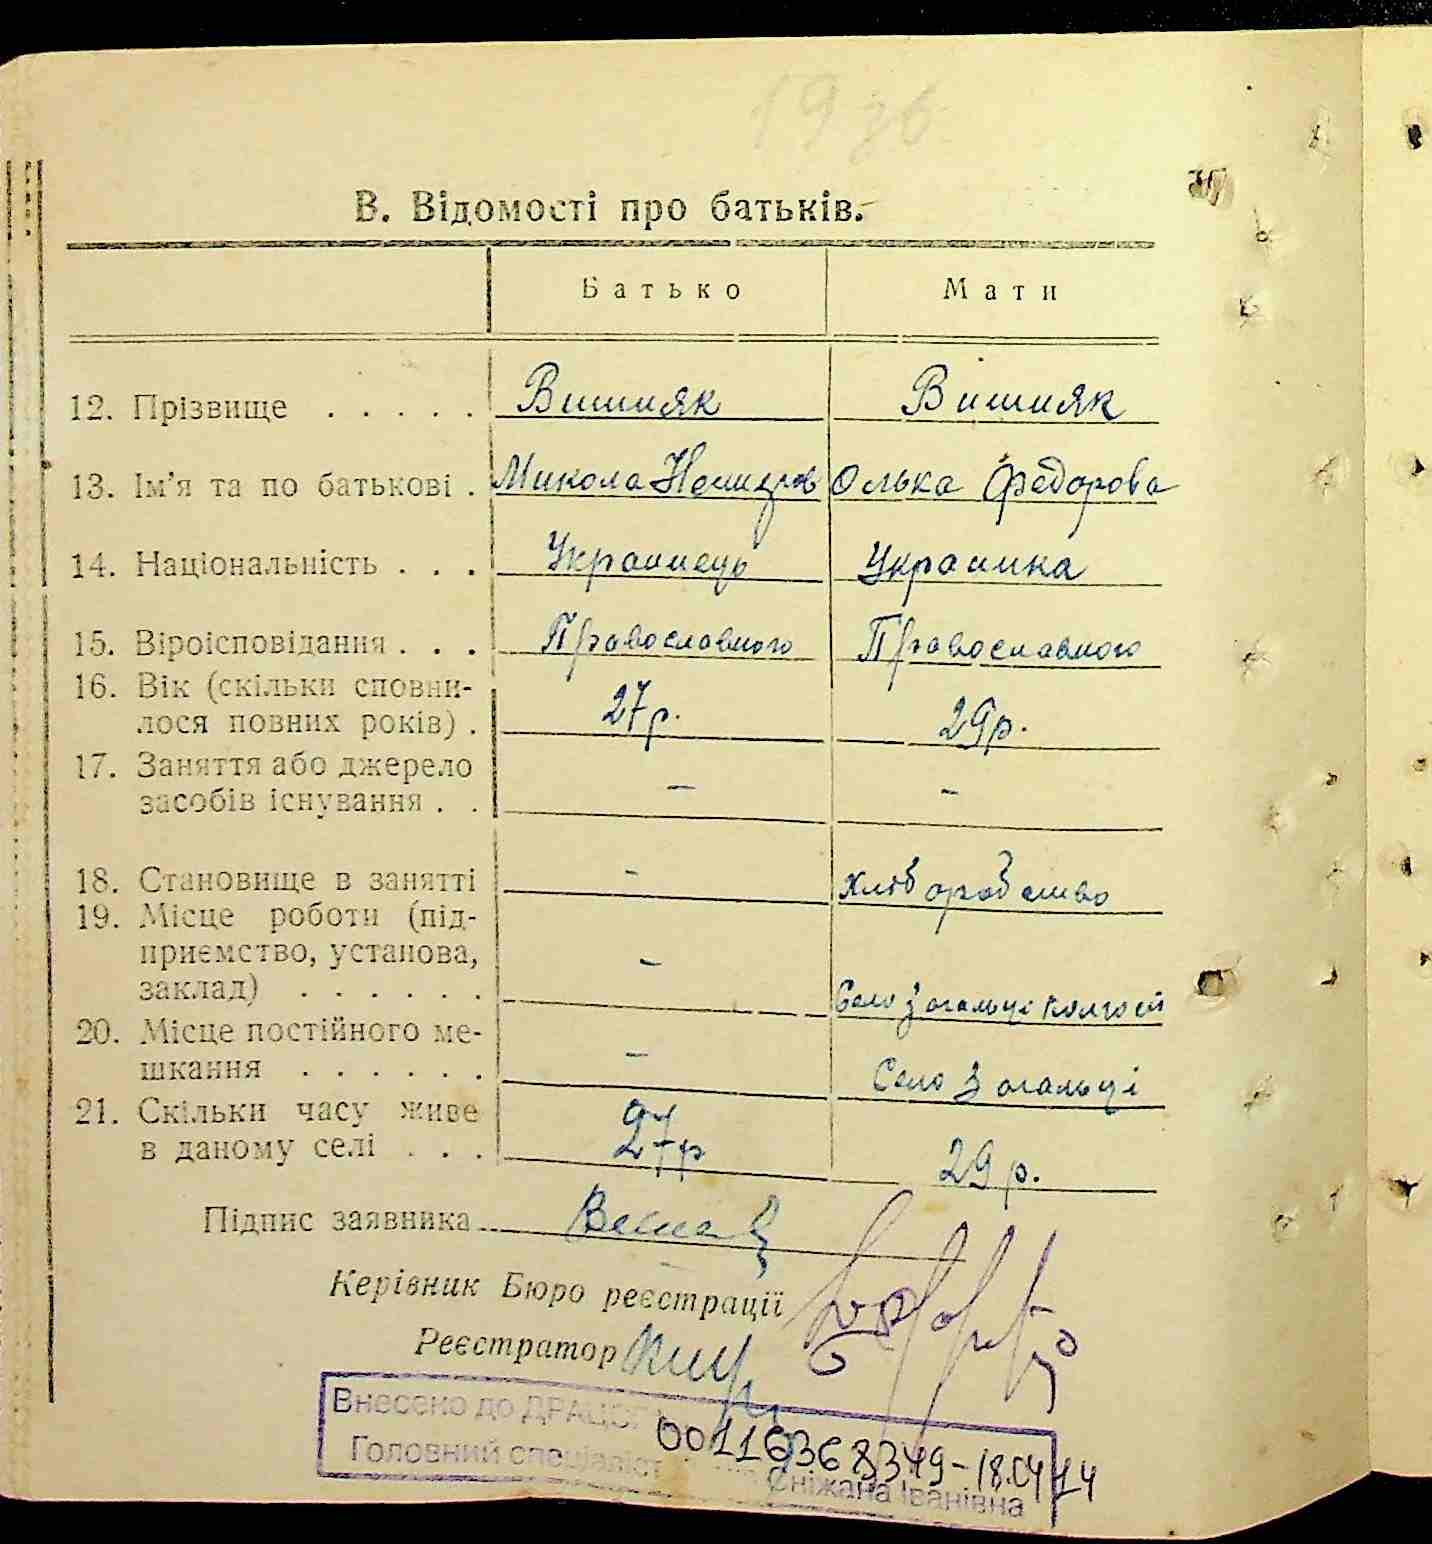 1936
В. Відомості про батьків.
Батько Мати
12. Прізвище . . . . . Вишняк Вишняк
13. Ім’я та по батькові . Микола Олька Федорова
14. Національність . . . Украинець Украинка
15. Віроісповідання . . . Православного Православного
16. Вік (скільки сповни-
лося повних років) . 27р. 29р.
17. Заняття або джерело
засобів існування . . - -
18. Становище в занятті - хлеборобство
19. Місце роботи (під-
приємство, установа,
заклад) . . . . . . - Село Зогальці колгосп
20. Місце постійного ме-
шкання . . . . . . - Село Зогальці
21. Скільки часу живе
в даному селі . . . 27р 29р.
Підпис заявника
Керівник Бюро реєстрації
Реєстратор
Внесено до ДРАЦСГ
00116368349-18.04.14
Головний спеціаліст Сніжана Іванівна